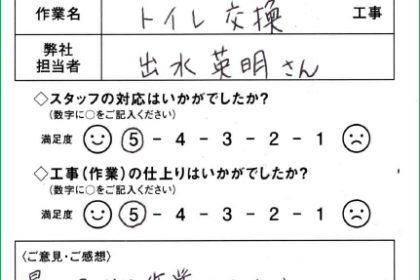 作業名 トイレ交換 工事
弊社
担当者 出水英明さん
◇スタッフの対応はいかがでしたか?
(数字に○をご記入ください)
満足度 5 - 4 - 3 - 2 - 1
◇工事(作業)の仕上りはいかがでしたか?
(数字に○をご記入ください)
満足度 5 - 4 - 3 - 2 - 1
〈ご意見・ご感想〉